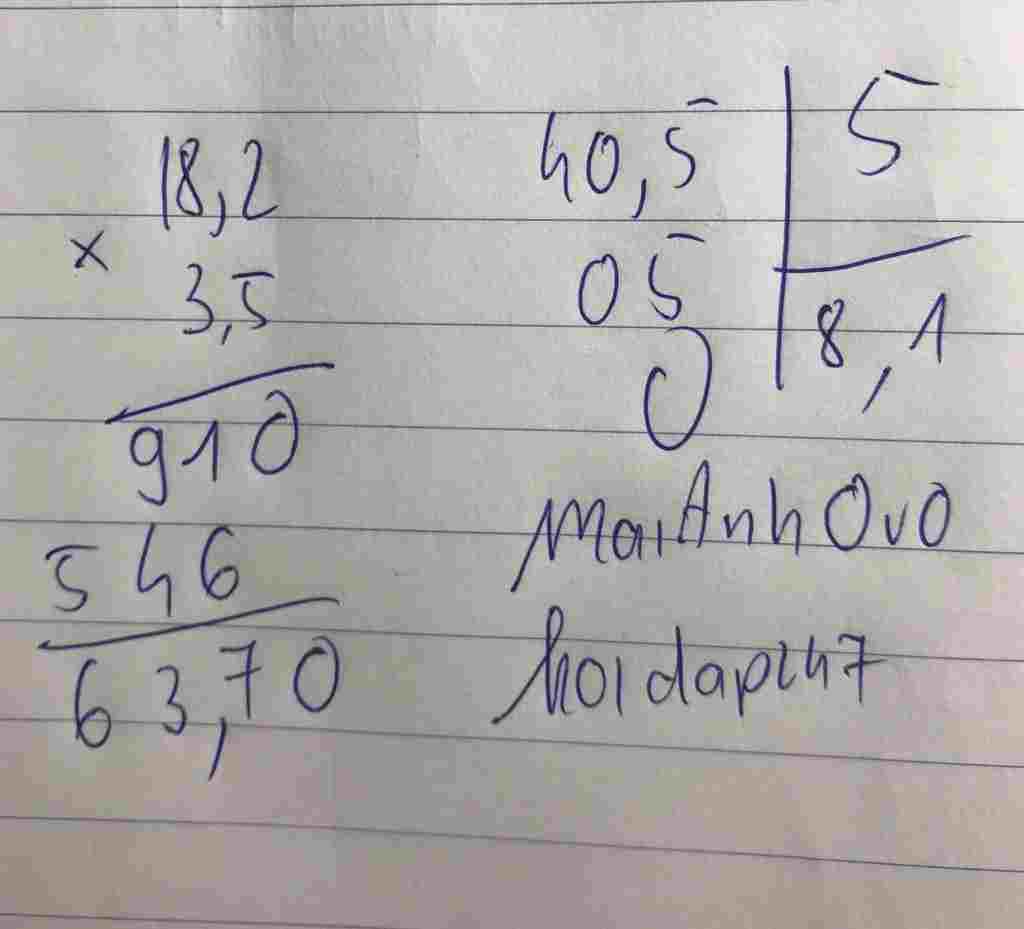 18,2
x
3,5
910
546
63,70
40,5 5
05 8,1
0
MaiAnhOvO
hoidap247